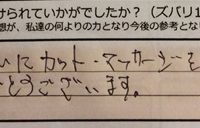 けられていかがでしたか？（ズバリ1
想が、私達の何よりの力となり今後の参考とな
いにカット・マッサージを
とうございます。